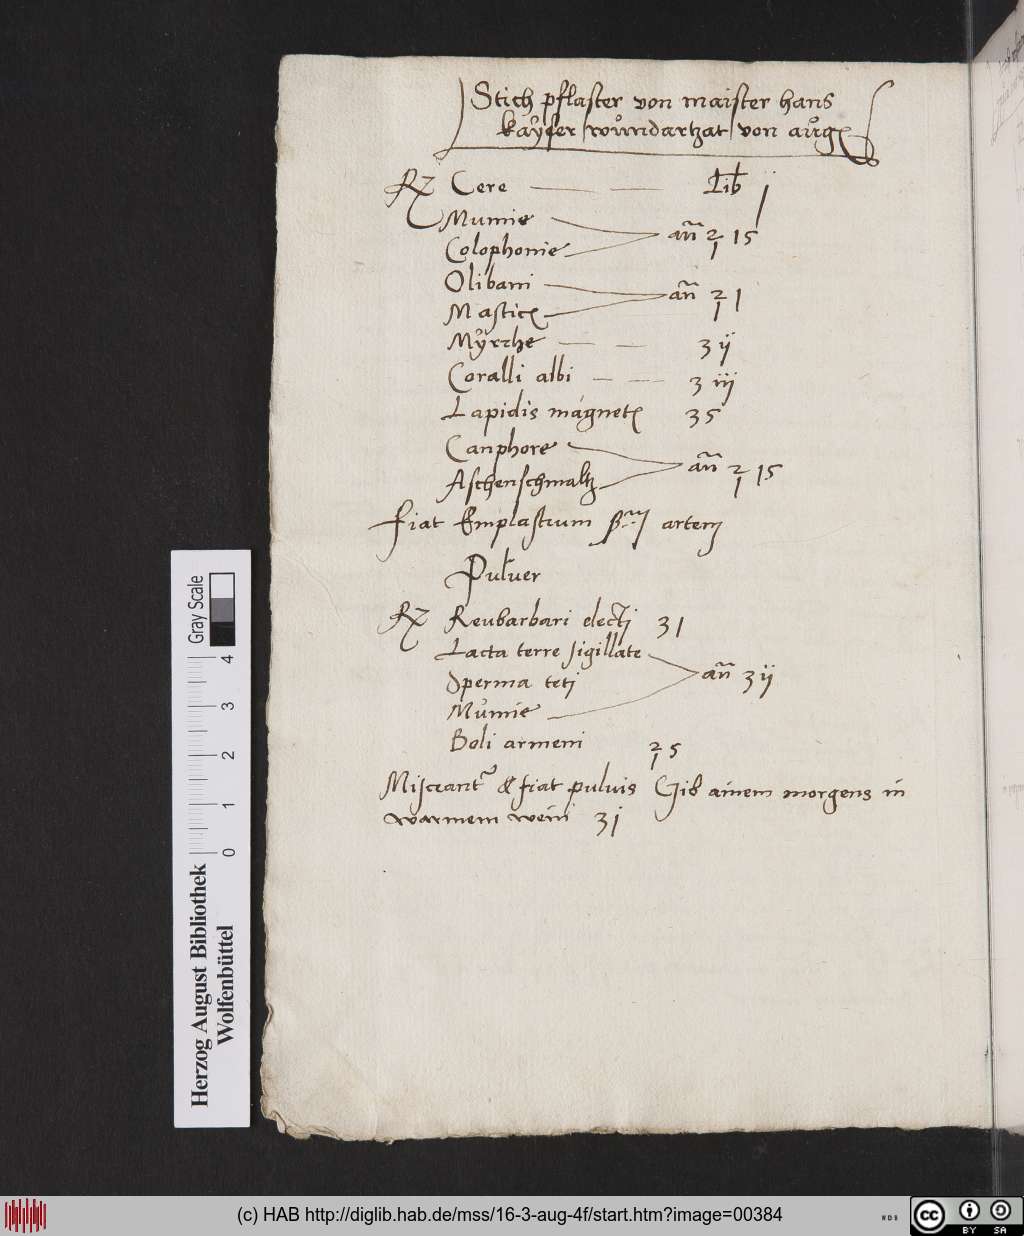 Stich pflaster von maister hans
kaÿser wůndartzat von aůg
℞ Cere — — Lib j
Mumie
Colophonie
an̄ ℥ 1 5
Olibani
Mastic
an̄ ℥ 1
Mÿrrhe — — ʒ ij
Coralli albi — — ʒ iij
Lapidis magnet ʒ 5
Canphore
Aschenschmaltz
an̄ ℥ 1 5
Fiat Emplastrum artem
Puluer
℞ Reubarbari electi ʒ 1
Lacta terre sigillate
Sperma ceti
Můmie
an̄ ʒ ij
Boli armeni ℥ 5
Misceant & fiat puluis Gib ainem morgens in
warmem wein ʒ j
Herzog August Bibliothek
Wolfenbüttel
Gray Scale
0 1 2 3 4
(c) HAB http://diglib.hab.de/mss/16-3-aug-4f/start.htm?image=00384
WDB
cc BY SA